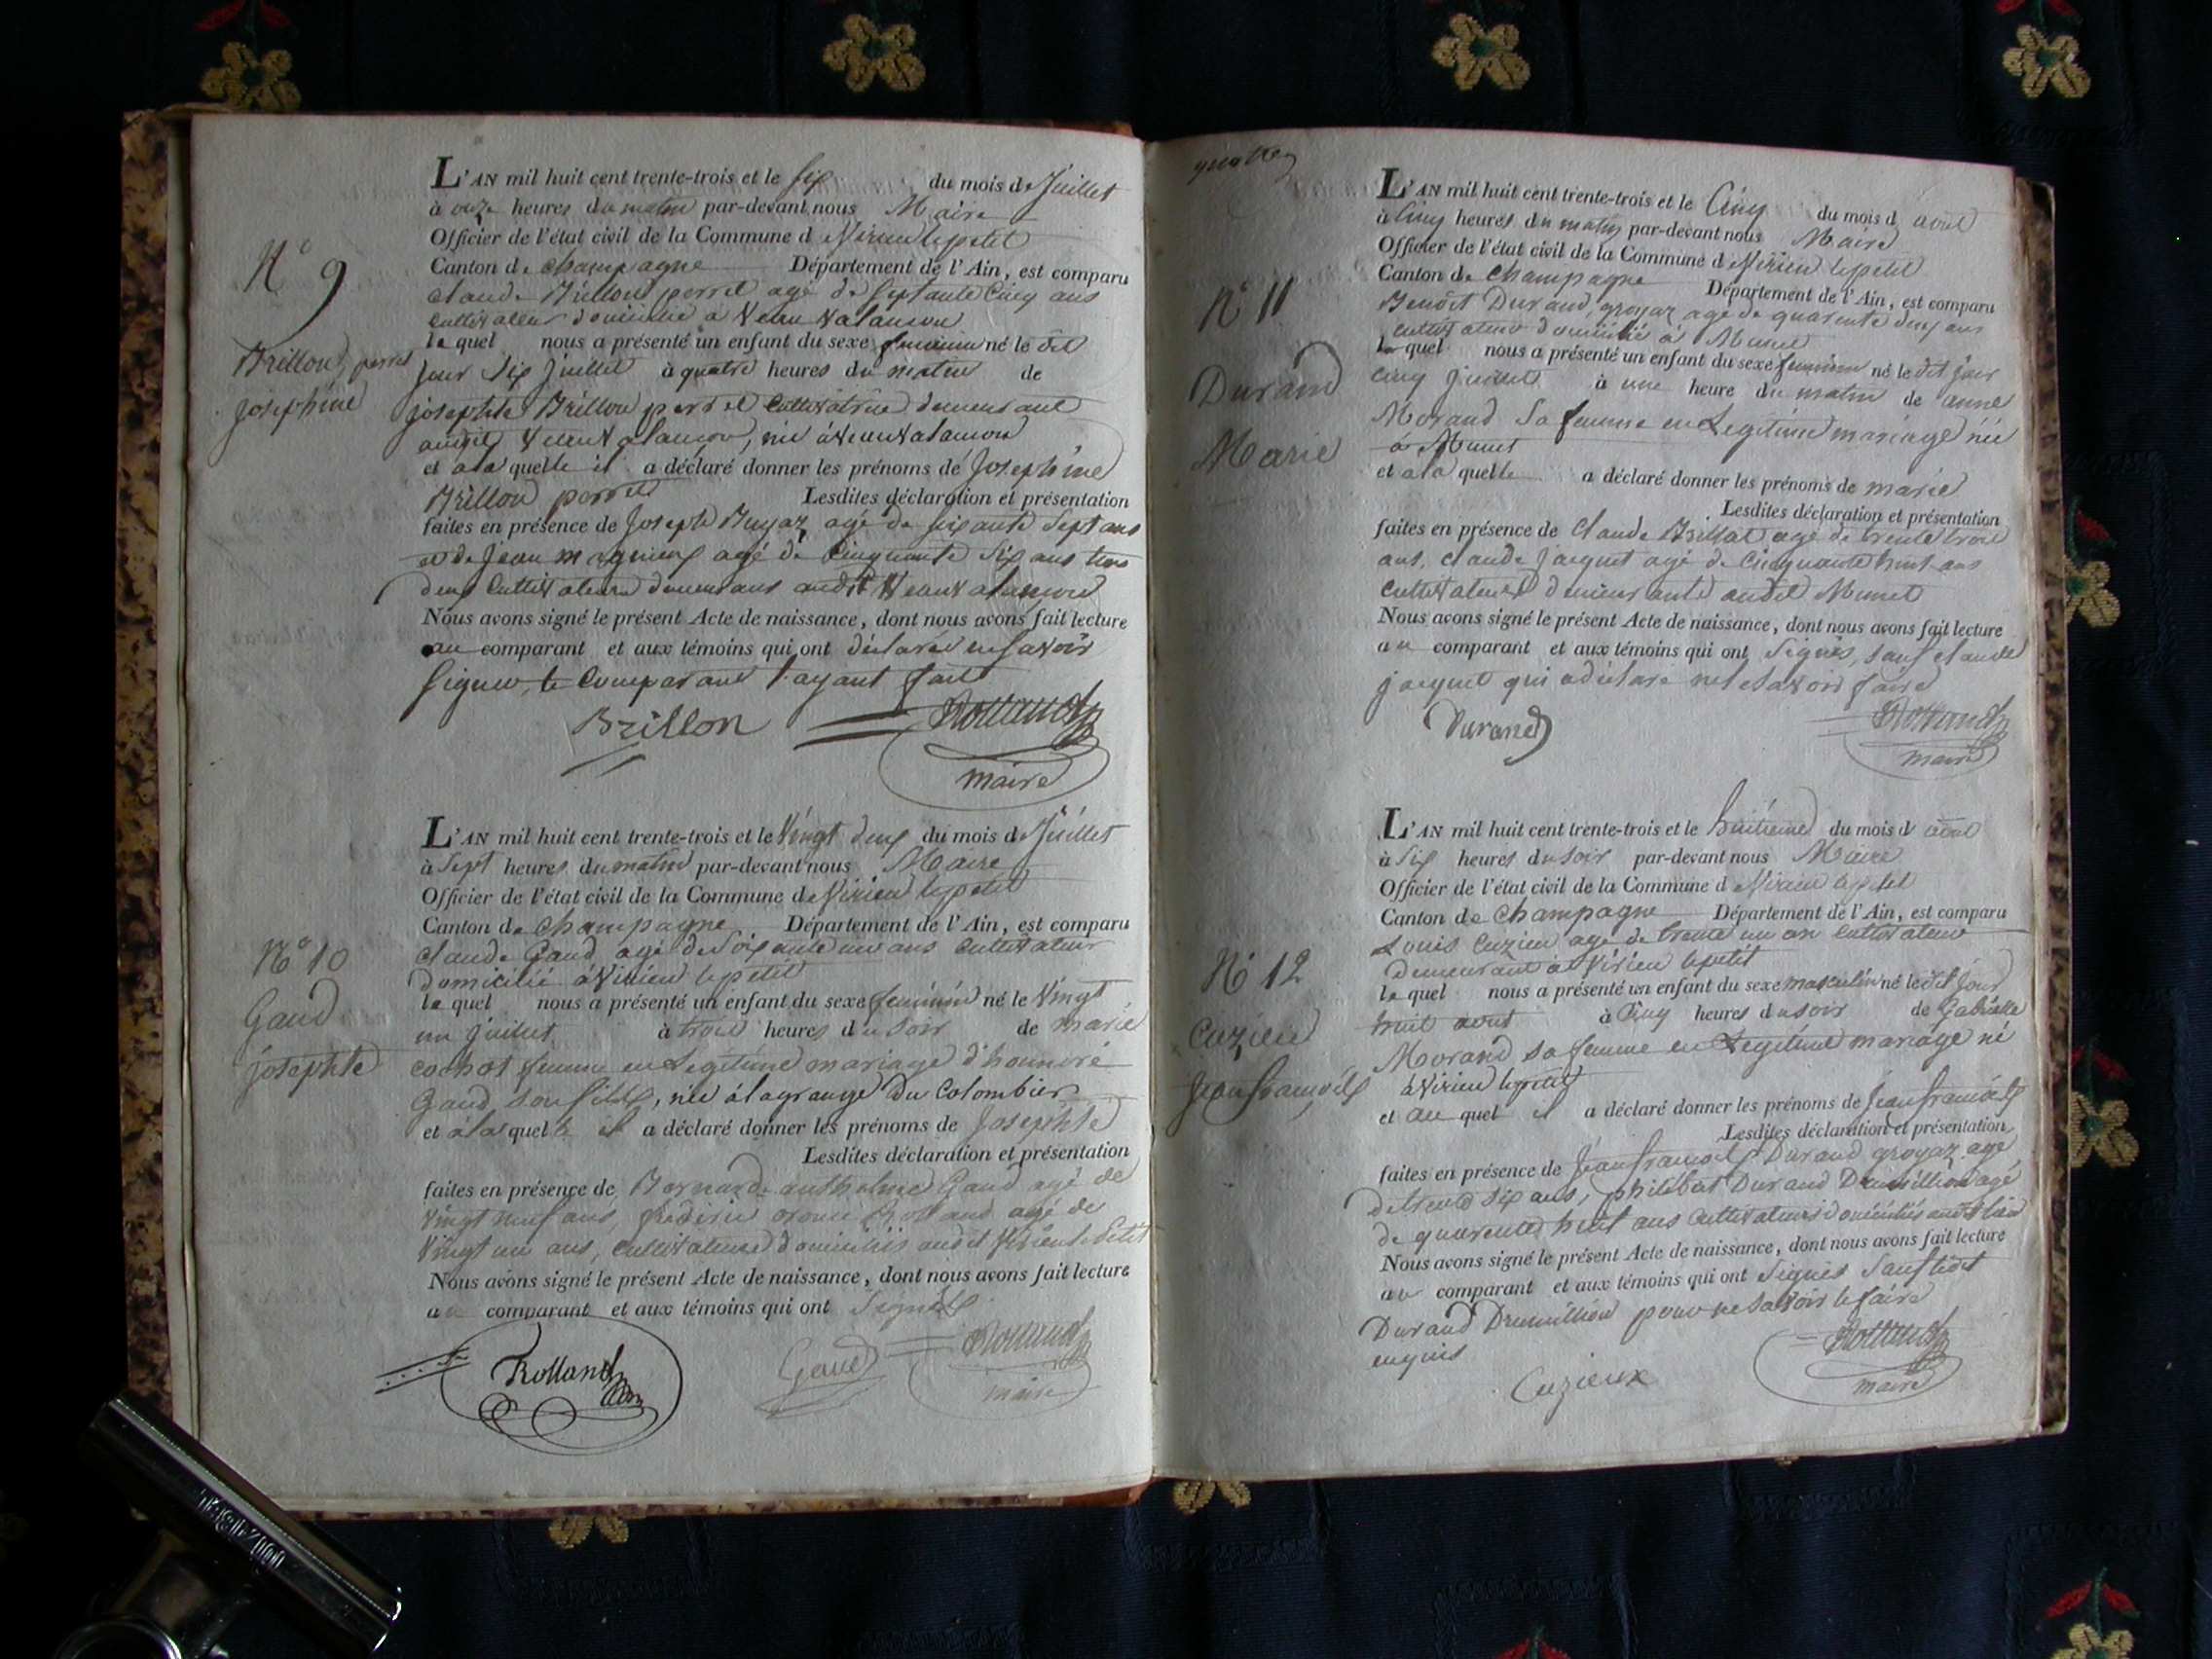 L'AN mil huit cent trente-trois et le six du mois de Juillet
à onze heures du matin par-devant nous Maire
Officier de l'état civil de la Commune d Virieu le petit
Canton de Champagne Département de l'Ain, est comparu
Claude Brillon perret agé de septante cinq ans
cultivateur domicilié à
le quel nous a présenté un enfant du sexe feminin né le dit
jour six Juillet à quatre heures du matin de
josephte Brillon perret cultivatrice demeurant
audit
et a la quelle il a déclaré donner les prénoms de Josephine
Brillon perret Lesdites déclaration et présentation
faites en présence de Joseph agé de soixante sept ans
et de Jean agé de cinquante six ans tous
deux cultivateurs demeurans audit
Nous avons signé le présent Acte de naissance, dont nous avons fait lecture
au comparant et aux témoins qui ont déclaré ne savoir
signer, le comparant l'ayant fait
Brillon Rolland
maire
N° 9
Brillon perret
josephine
L'AN mil huit cent trente-trois et le Vingt deux du mois de Juillet
à sept heures du matin par-devant nous Maire
Officier de l'état civil de la Commune de Virieu le petit
Canton de Champagne Département de l'Ain, est comparu
Claude Gaud agé de soixante un ans cultivateur
Domicilié à Virieu le petit
le quel nous a présenté un enfant du sexe feminin né le Vingt
un juillet à trois heures du soir de marie
cochot femme en Legitime mariage d'honnoré
Gaud son fils, née à lagrange Du Colombier
et à la quelle il a déclaré donner les prénoms de Josephte
Lesdites déclaration et présentation
faites en présence de Bernard anthelme Gaud agé de
vingt neuf ans, Rolland agé de
Vingt un ans, cultivateurs domiciliés audit Virieu le Petit
Nous avons signé le présent Acte de naissance, dont nous avons fait lecture
au comparant et aux témoins qui ont signés
Rolland Gaud Rolland
maire
N° 10
Gaud
josephte
L'AN mil huit cent trente-trois et le Cinq du mois d aout
à Cinq heures du matin par-devant nous Maire
Officier de l'état civil de la Commune d Virieu le petit
Canton de Champagne Département de l'Ain, est comparu
Benoit Durand groyaz agé de quarente deux ans
cultivateur domicilié à Munet
le quel nous a présenté un enfant du sexe feminin né le dit jour
cinq juillet à une heure du matin de anne
Morand sa femme en Legitime mariage née
à Munet
et a la quelle a déclaré donner les prénoms de marie
Lesdites déclaration et présentation
faites en présence de Claude Brillat agé de trente trois
ans, claude jacquet agé de cinquante huit ans
cultivateurs demeurants audit Munet
Nous avons signé le présent Acte de naissance, dont nous avons fait lecture
au comparant et aux témoins qui ont signés, sauf claude
jacquet qui a déclaré ne le savoir faire
Durand Rolland
maire
N° 11
Durand
Marie
L'AN mil huit cent trente-trois et le huitième du mois d aout
à six heures du soir par-devant nous Maire
Officier de l'état civil de la Commune d Virieu le petit
Canton de Champagne Département de l'Ain, est comparu
Louis Cuzieu agé de trente un an cultivateur
demeurant à Virieu le petit
le quel nous a présenté un enfant du sexe masculin né le dit jour
huit aout à cinq heures du soir de Gabrielle
Morand sa femme en Legitime mariage né
à Virieu le petit
et au quel il a déclaré donner les prénoms de Jean françois
Lesdites déclaration et présentation
faites en présence de Jean françois Durand groyaz agé
de trente six ans, philibert Durand Dremillion agé
de quarente huit ans cultivateurs domiciliés audit lieu
Nous avons signé le présent Acte de naissance, dont nous avons fait lecture
au comparant et aux témoins qui ont signés sauf ledit
Durand Dremillion pour ne savoir le faire
enquis
Cuzieux Rolland
maire
N° 12
Cuzieu
Jean françois